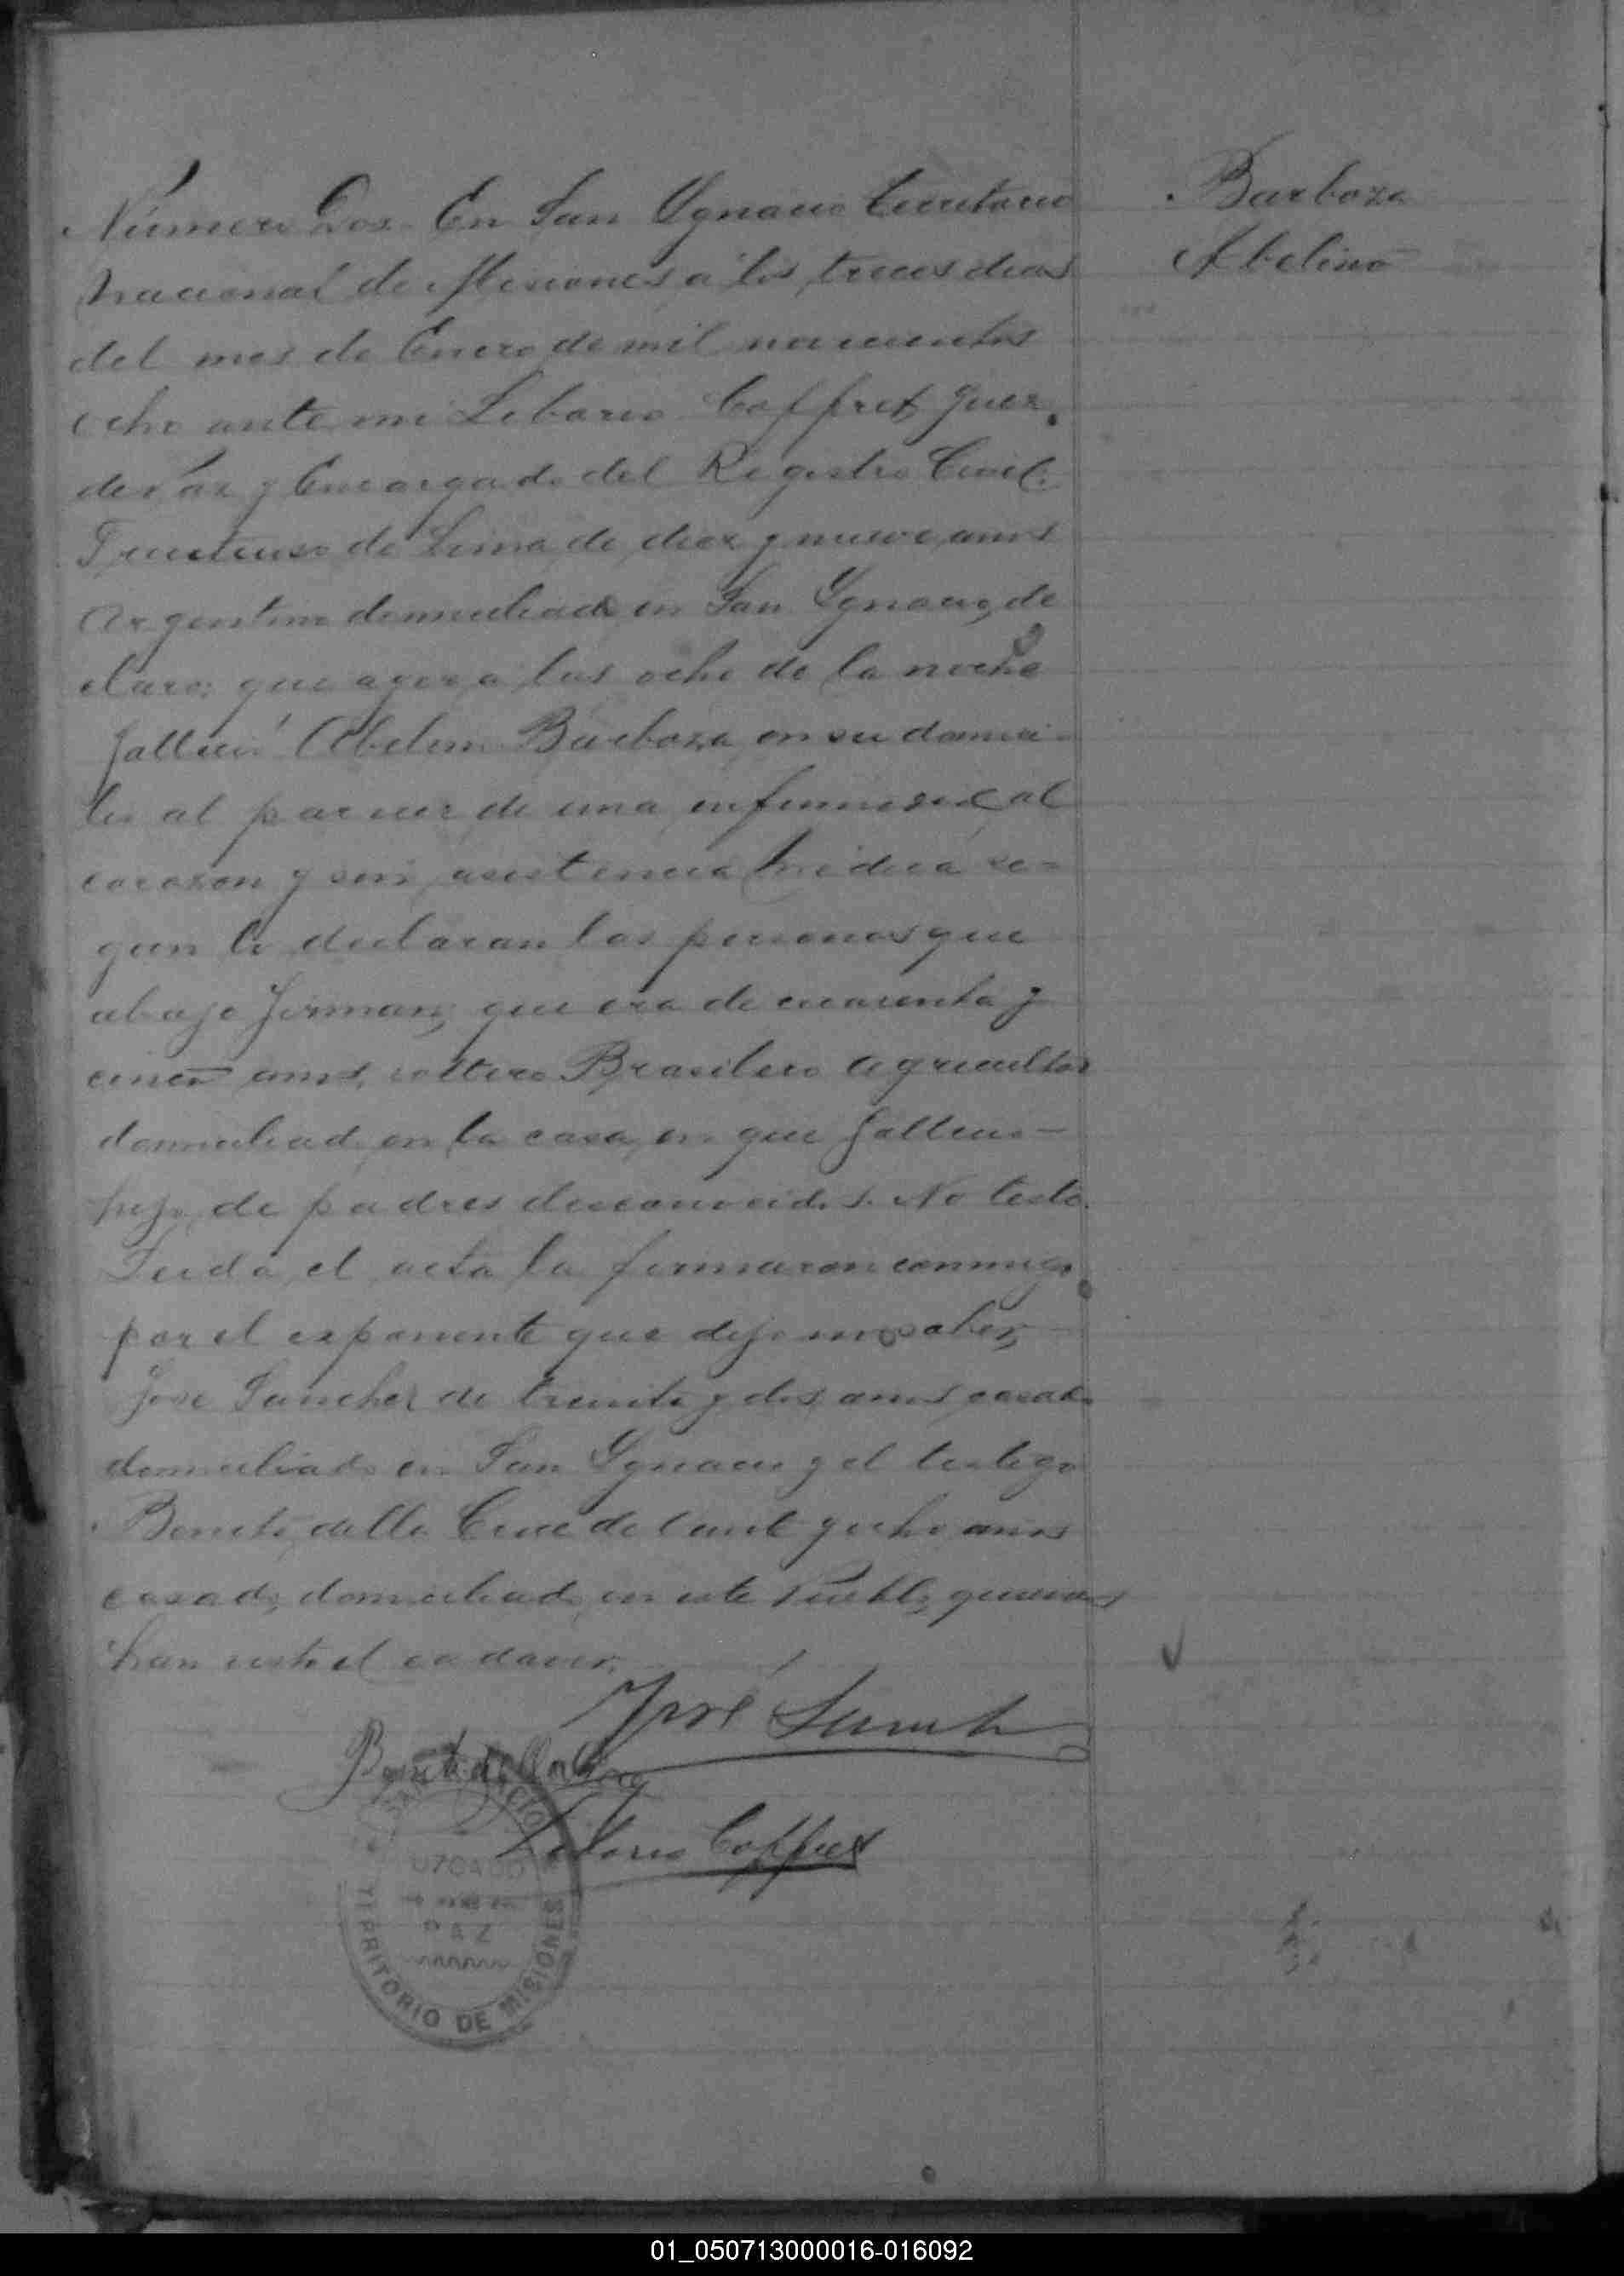 Barboza
Abelino
Número Dos. En San Ygnacio Territorio
Nacional de Misiones a los treces dias
del mes de Enero de mil novecientos
ocho ante mi Liborio Coffret Juez
de Paz y Encargado del Registro Civil.
de Lima de diez y nueve anos
Argentino domiciliado en San Ygnacio, de
claro: que ayer a las ocho de la noche
falleció Abelino Barboza en su domici-
lio al parecer de una enfermedad al
corazon y sin asistencia Medica se-
gun lo declaran las personas que
abajo firman, que era de cuarenta y
cinco anos, soltero Brasilero agricultor
domiciliado en la casa en que fallecio-
hijo de padres desconocidos. No testo.
Leida el acta la firmaron conmigo
por el exponente que dijo no saber,
Jose Sanchez de treinta y dos anos casado
domiciliado en San Ygnacio y el testigo
Benito della Cruz de veinte y ocho anos
casado, domiciliado en este Pueblo, quienes
han visto el cadaver.
José Sanch
Benito della Cruz
Liborio Coffret
SAN IGNACIO
JUZGADO
DE
PAZ
TERRITORIO DE MISIONES
01_050713000016-016092